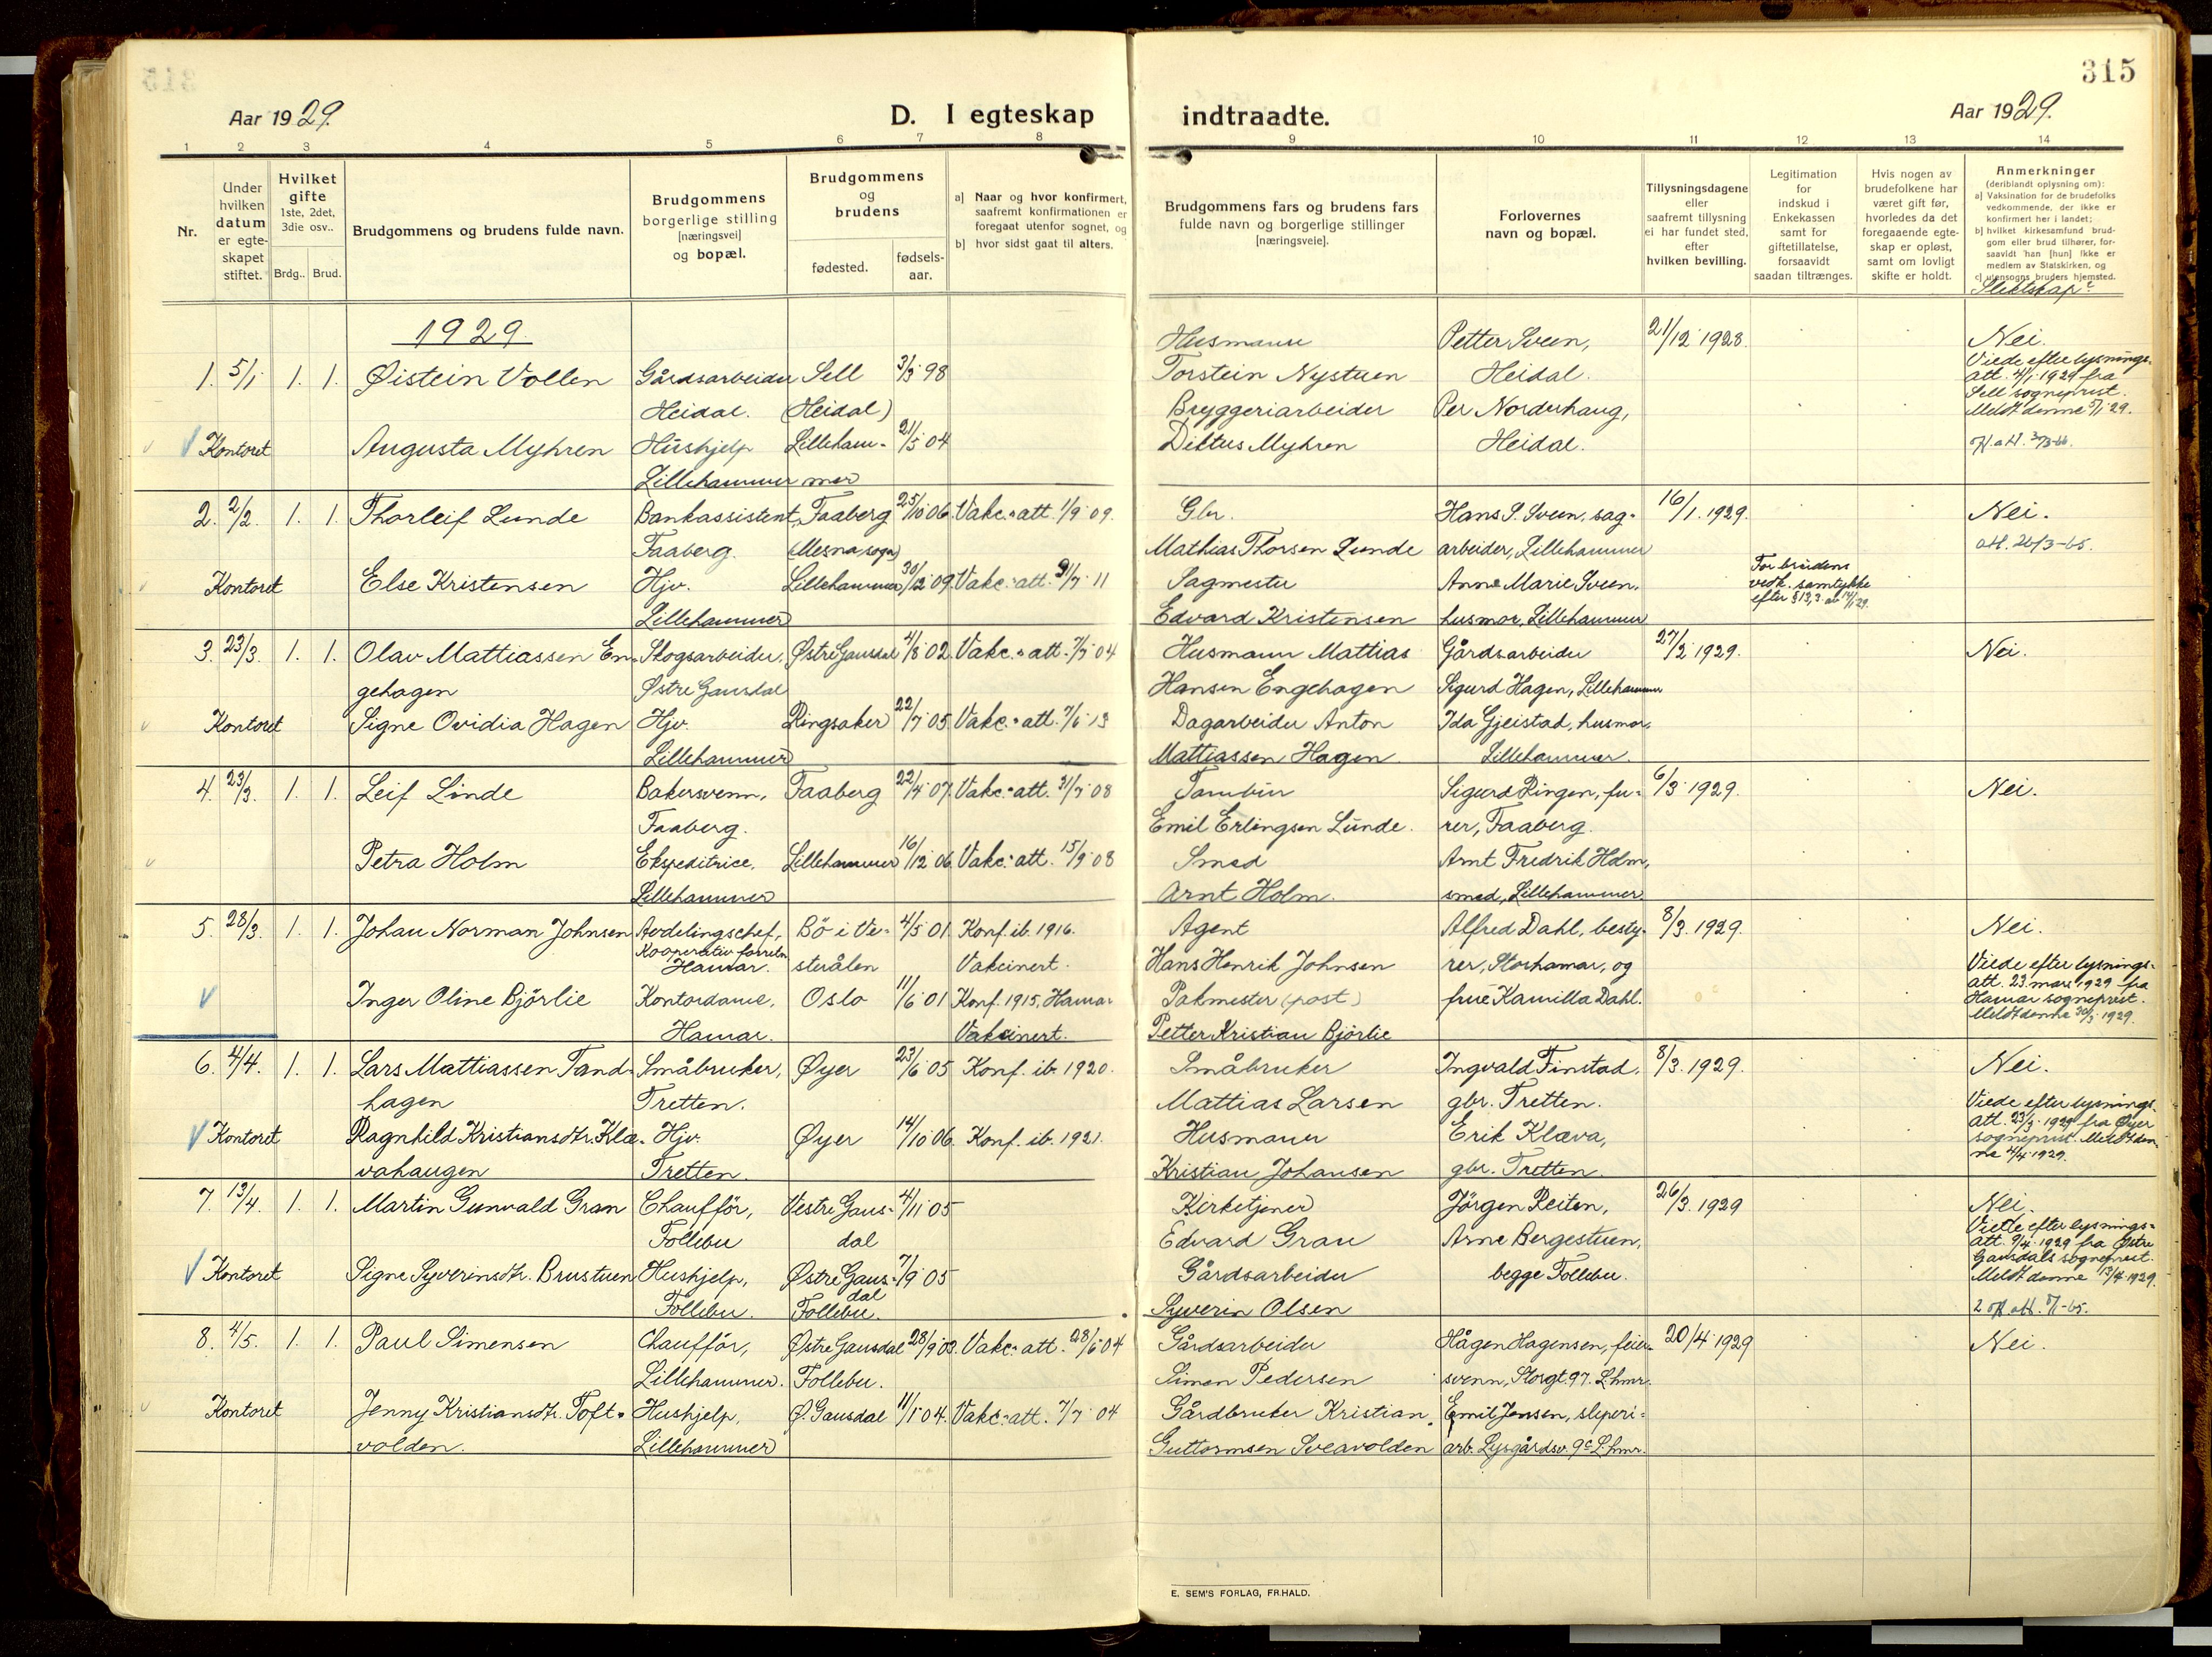 315
Aar 1929.
D. I egteskap indtraadte.
Aar 1929.
1 2 3 4 5 6 7 8 9 10 11 12 13 14
Nr.
Under hvilken datum er egteskapet stiftet.
Hvilket gifte 1ste, 2det, 3die osv..
Brdg.. Brud.
Brudgommens og brudens fulde navn.
Brudgommens borgerlige stilling [næringsvei] og bopæl.
Brudgommens og brudens
fødested.
fødselsaar.
a] Naar og hvor konfirmert, saafremt konfirmationen er foregaat utenfor sognet, og
b] hvor sidst gaat til alters.
Brudgommens fars og brudens fars fulde navn og borgerlige stillinger [næringsveie].
Forlovernes navn og bopæl.
Tillysningsdagene eller saafremt tillysning ei har fundet sted, efter hvilken bevilling.
Legitimation for indskud i Enkekassen samt for giftetillatelse, forsaavidt saadan tiltrænges.
Hvis nogen av brudefolkene har været gift før, hvorledes da det foregaaende egteskap er opløst, samt om lovligt skifte er holdt.
Anmerkninger (deriblandt oplysning om):
a] Vaksination for de brudefolks vedkommende, der ikke er konfirmert her i landet;
b] hvilket kirkesamfund brudgom eller brud tilhører, forsaavidt han [hun] ikke er medlem av Statskirken, og
c] utensogns bruders hjemsted.
Slektskap?
1929
Husmann Petter Sveen, 21/12 1928. Nei.
1. 5/1 1. 1. Øistein Vollen Gårdsarbeider Sell 3/3 98 Torstein Nystuen Heidal. Viede efter lysnings-
att. 4/1 1929 fra
Sell sogneprest.
Heidal. (Heidal) Bryggeriarbeider Per Norderhaug, Meldt denne 5/1 29.
Kontoret Augusta Myhren Hushjelp Lilleham- 21/5 04 Ditlus Myhren Heidal.
Lillehammer mer
2. 2/2. 1. 1. Thorleif Lunde Bankassistent, Faaberg 25/10 06 Vakc.att. 1/9 09. Gbr. Hans P. Sveen, sag- 16/1. 1929. Nei.
Faaberg. (Mesna sogn) Mathias Thorsen Lunde arbeider, Lillehammer att. 26/3-65.
Kontoret Else Kristensen Hjv. Lillehammer 30/12 09. Vakc.att. 31/7 11 Sagmester Anne Marie Sveen, For brudens
vedk. samtykke
Lillehammer Edvard Kristensen husmor, Lillehammer
3. 23/3. 1. 1. Olav Mattiassen En- Skogsarbeider, Østre Gausdal 4/8 02 Vakc.att. 7/7 04 Husmann Mattias Gårdsarbeider 27/2 1929. Nei.
gehagen Østre Gausdal Hansen Engehagen Sigurd Hagen, Lillehammer
Kontoret Signe Ovidia Hagen Hjv. Ringsaker 22/7 05 Vakc.att. 7/6 13 Dagarbeider Anton Ida Gjeistad, husmor,
Lillehammer Mattiassen Hagen. Lillehammer.
4. 23/3. 1. 1. Leif Linde Bakersvenn, Faaberg 22/4 07. Vakc.att. 31/7 08 Tambur Sigurd Ringen, fu- 6/3 1929. Nei.
Faaberg. Emil Erlingsen Lunde. rer, Faaberg.
Petra Holm Ekspeditrice, Lillehammer 16/12 06 Vakc.att. 15/9 08 Smed Arnt Fredrik Holm,
Lillehammer Arnt Holm. smed, Lillehammer.
5. 28/3. 1. 1. Johan Norman Johnsen Avdelingschef, Bö i Ve- 4/5 01 Konf. ib. 1916. Agent Alfred Dahl, besty- 8/3. 1929. Nei.
Hamar. sterålen Vakcinert. Hans Henrik Johnsen rer, Storhamar, og Viede efter lysnings-
att. 23 mars 1929 fra
Inger Oline Björlie Kontordame, Oslo 11/6 01 Konf. 1915, Hamar Pakmester (post) frue Kamilla Dahl. Hamar sogneprest.
Meldt denne 30/3 1929.
Hamar. Vakcinert. Petter Kristian Björlie
6. 4/4. 1. 1. Lars Mattiassen Tand- Småbruker, Øyer 23/6 05 Konf. ib. 1920. Småbruker Ingvald Finstad, 8/3. 1929. Nei.
hagen Tretten. Mattias Larsen gbr. Tretten. Viede efter lysnings-
att. 23/3 1929 fra Øyer
Kontoret Ragnhild Kristiansdtr. Klæ- Hjv. Øyer 14/10 06. Konf. ib. 1921. Husmann Erik Klæva, sogneprest. Meldt den-
ne 4/4 1929.
vahaugen Tretten. Kristian Johansen gbr. Tretten.
7. 13/4. 1. 1. Martin Gunvald Gran Chaufför, Vestre Gaus- 4/11 05 Kirketjener Jörgen Reiten, 26/3. 1929 Nei.
Follebu dal Edvard Gran Arne Bergestuen, Viette efter lysnings-
att. 9/4 1929 fra Østre
Kontoret Signe Syverinsdtr. Brustuen Hushjelp, Østre Gaus- 7/9 05 Gårdsarbeider begge Follebu. Gausdals sogneprest.
dal Meldt denne 13/4 1929.
Follebu. Follebu. Syverin Olsen
8. 4/5. 1. 1. Paul Simensen Chaufför, Østre Gausdal 28/9 03. Vakc.att. 28/6 04 Gårdsarbeider Hågen Hagensen, feier- 20/4 1929 Nei.
Lillehammer. Follebu. Simen Pedersen svenn, Storgt. 97. L.hmr.
Kontoret Jenny Kristiansdtr. Toft- Hushjelp, Ø. Gausdal 11/1 04. Vakc.att. 7/7 04 Gårdbruker Kristian Emil Jensen, sliperi-
volden. Lillehammer Guttormsen Sveavolden arb. Lysgårdsv. 9c L.hmr.
E. SEM'S FORLAG, FR.HALD.